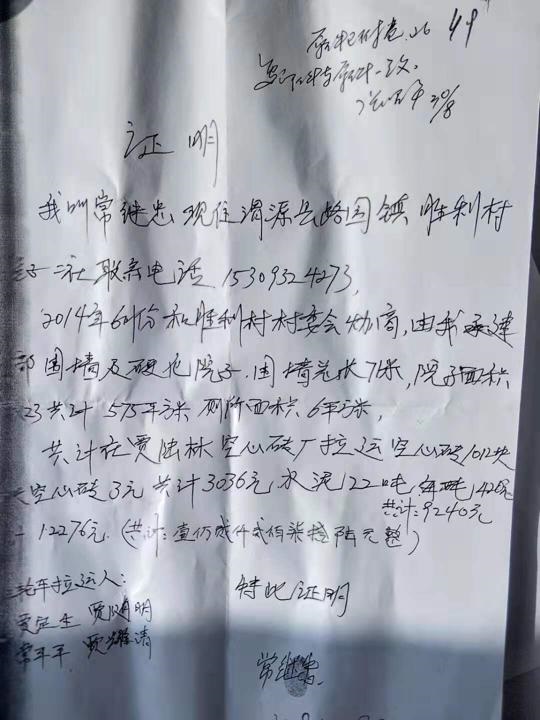 49
复印件与原件一致。
证明
我叫常继忠现住渭源县路园镇胜利村
二社联系电话15309324273,
2014年6月份和胜利村村委会协商,由我承建
部围墙及硬化院子.围墙总长71米,院子面积
23共计575平方米厕所面积6平方米,
共计在贾法林空心砖厂拉运空心砖1012块
空心砖3元共计3036元,水泥22吨,每吨420元
共计:9240元
12276元.(共计:壹万贰仟贰佰柒拾陆元整)
轮车拉运人: 特此证明
贾 生 贾 明
常平平 贾耀清
常继忠